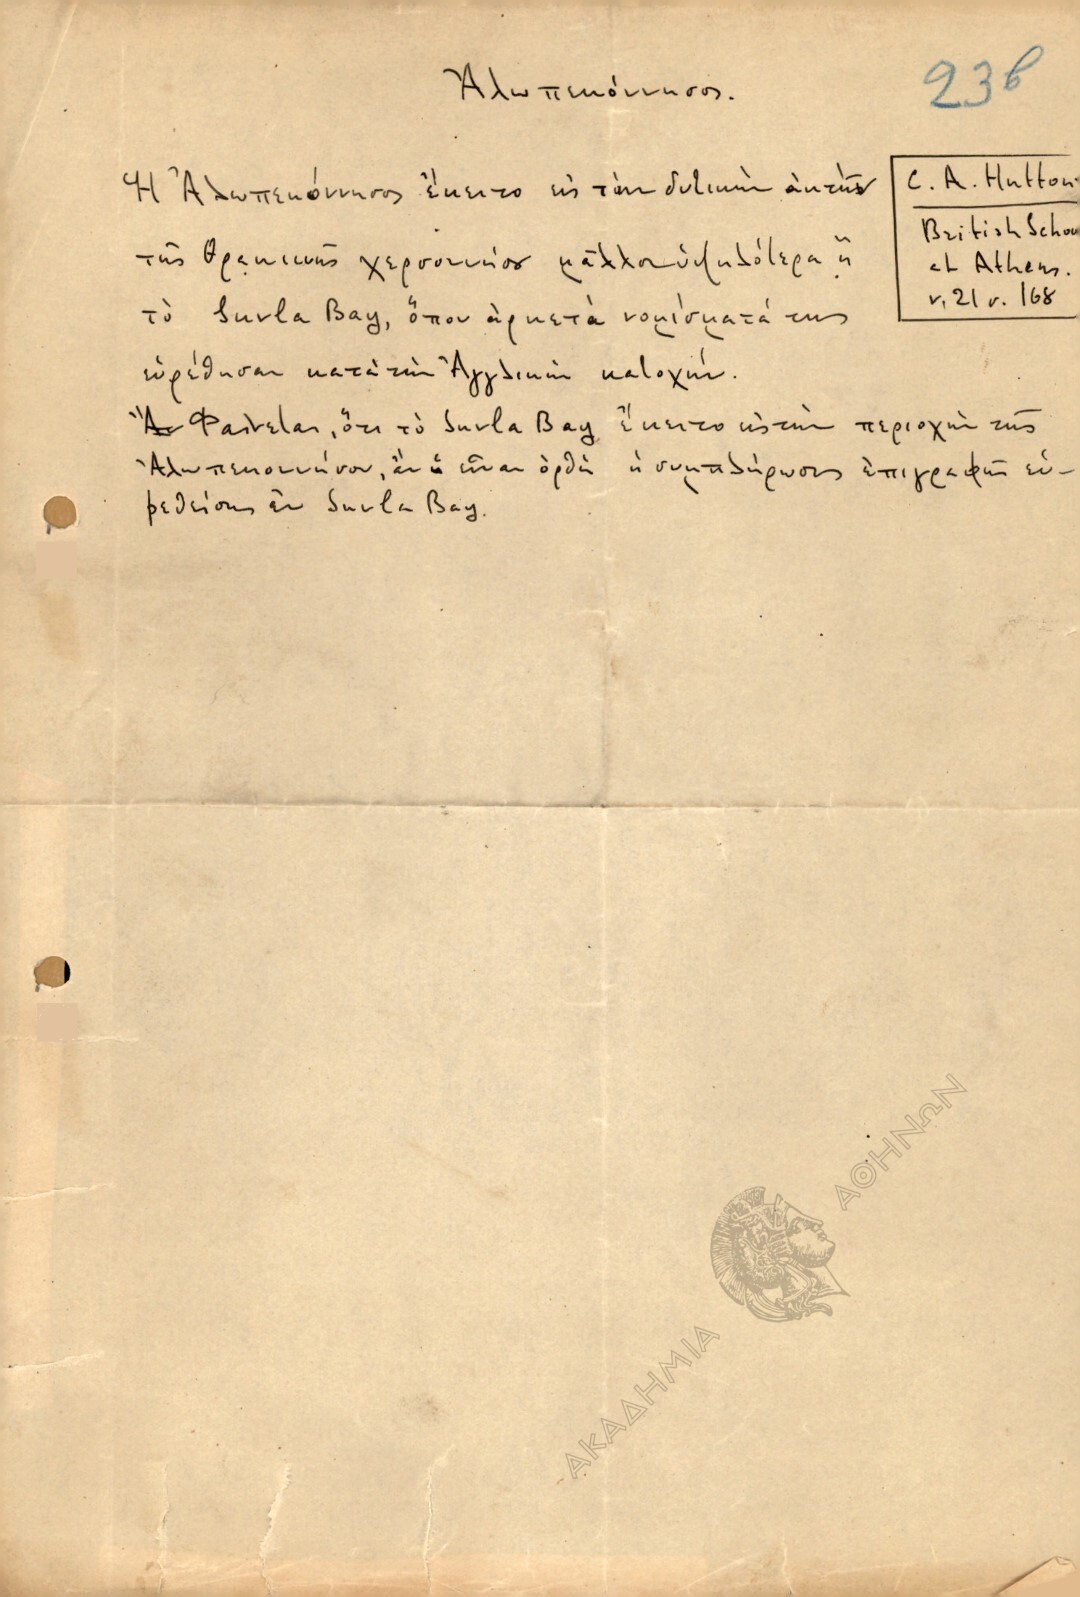 Ἀλωπεκόννησος.
23β
Ἡ Ἀλωπεκόννησος ἔκειτο εἰς τὴν δυτικὴν ἀκτὴν
τῆς Θρᾳκικῆς χερσοννήσου μᾶλλον ὑψηλότερα ἢ
τὸ Suvla Bay, ὅπου ἀρκετὰ νομίσματά της
εὑρέθησαν κατὰ τὴν Ἀγγλικὴν κατοχήν.
Φαίνεται, ὅτι τὸ Suvla Bay ἔκειτο εἰς τὴν περιοχὴν τῆς
Ἀλωπεκοννήσου, ἂν εἶναι ὀρθὴ ἡ συμπλήρωσις ἐπιγραφῆς εὑ-
ρεθείσης ἐν Suvla Bay.
C. A. Hutton
British Schoo
at Athens.
v. 21 v. 168
ΑΚΑΔΗΜΙΑ ΑΘΗΝΩΝ